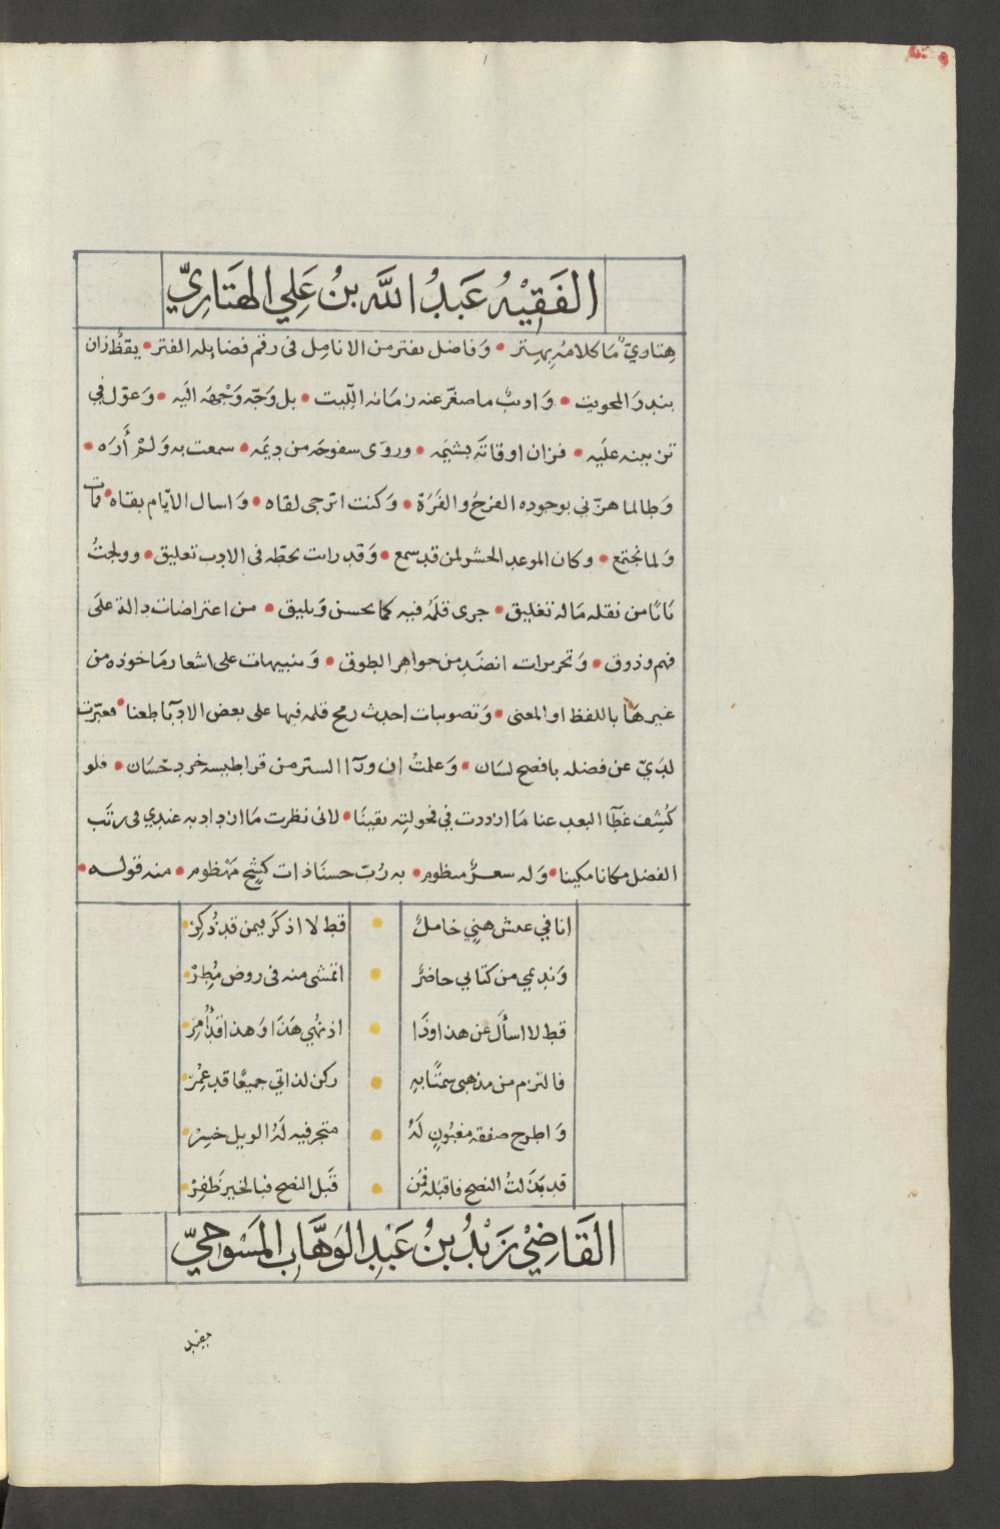 الفَقِيْهُ عَبدُ اللَّه بنُ عَلِي الهتَارِيّ
هِتاويّ مَا كلامهُ بهتر • وَفاضل يفتر من الانامل فى رقم فضايله الفتر • يقظٌ زان
بندر المحويت • وَاديبٌ ما صغّر عنه زمانه الليت • بل وَجّه وَجْهَه اليَه • وَعوّل في
تزيينه عليَه • فزان اوقاتَه بشيَمِه • وروّى سفوحَه من دِيَمه • سمعت به وَلمْ أرَه •
وَطالما هزّني بوجوده الفرحُ والفَرَة • وَكنت اترجى لقاه • وَاسال الايّام بقاه • فمات
وَلما نجتمع • وكان الموعد الحشر لمن قد سمع • وَقد رايت بخطّه فى الادب تعاليق • وولجتُ
بَابًا من نقله مَا له تغليق • جرى قلمُه فيه كما يحسن وَيليق • من اعتراضات دالة علىَ
فهم وذوق • وَتحريرات انضَد من جواهر الطوق • وَتنبيهات على اشعار مَاخوذه من
غيرهَا باللفظ او المعنى • وَتصويبات احدث رمح قلمه فيها على بعض الادبآء طعنا • فعبّرت
لدَيّ عن فضله بافصح لسَان • وَعلمتُ ان ورآء الستر من قراطيسه خرد حسَان • فلو
كُشِف غطَآء البعد عنا مَا ازددت في فحولتِه يقينًا • لانى نظرت مَا ازداد به عندِي فى رتَب
الفضل مكانا مكينا • وَله شعرٌ منظوم • به رُبّ حسنَا ذات كشحٍ مَهْظوم • منه قوله •
انا في عيش هنِي خاملٌ • قط لا اذكَر فيمن قد ذُكِرْ •
وَنديمي من كتابي حاضرٌ • اتمشى منه فى روض مُطِرْ •
قط لا اسأل عن هذا وذَا • اذ نُهِي هَذَا وَهذا قد أُمِرْ •
فالتزم من مذهبى سمتًا به • ركن لذاتي جميعًا قد عُمِرْ •
وَاطرح صفقه مغبُونٍ لَهُ • متجر فيه لَهُ الويل خسِرْ •
قد بَذَلتُ النصح فاقبَله فمَن • قَبل النصح فبالخير ظَفِرْ •
القَاضِيْ زَيْدُ بنُ عَبْدِ الوَهَّابِ المَسَوحيّ